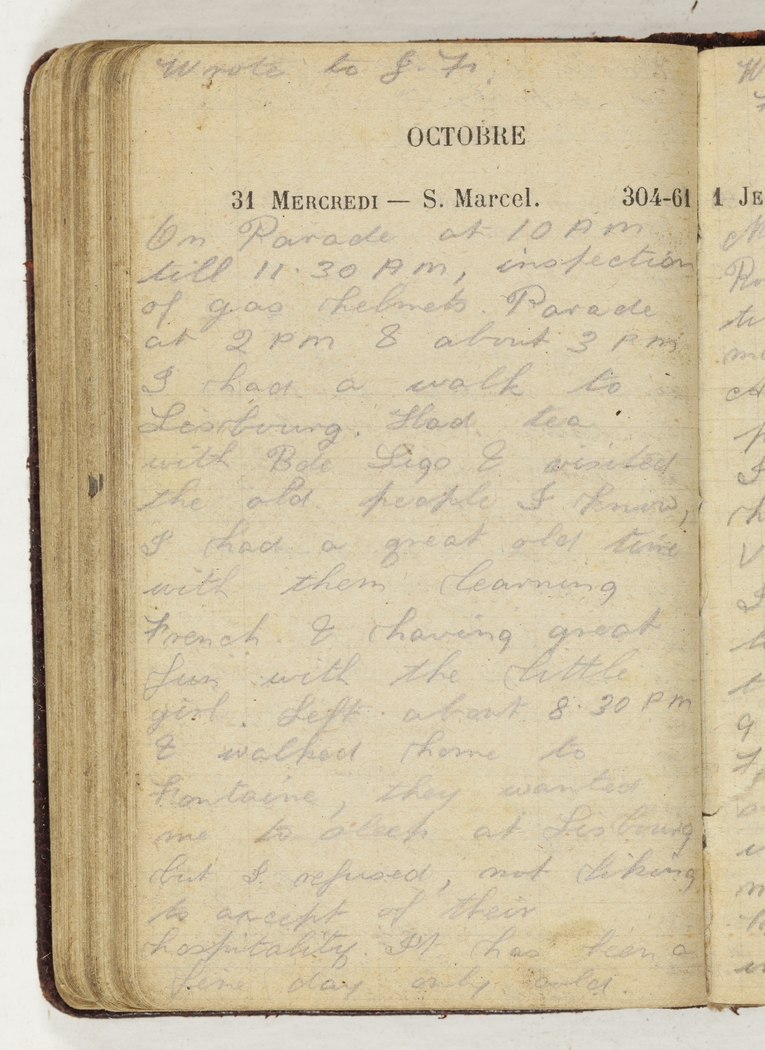 Wrote to J. F.
OCTOBRE
31 MERCREDI — S. Marcel. 304-61
On Parade at 10 AM
till 11.30 AM, inspection
of gas helmets. Parade
at 2 PM & about 3 PM
I had a walk to
Lisbourg. Had tea
with Bde Sigo & visited
the old people I know,
I had a great old time
with them learning
French. & having great
fun with the little
girl. Left about 8.30 PM
& walked home to
Fontaine, they wanted
me to sleep at Lisbourg
but I refused, not liking
to accept of their
hospitality. It has been a
fine day only cold.
1 JE